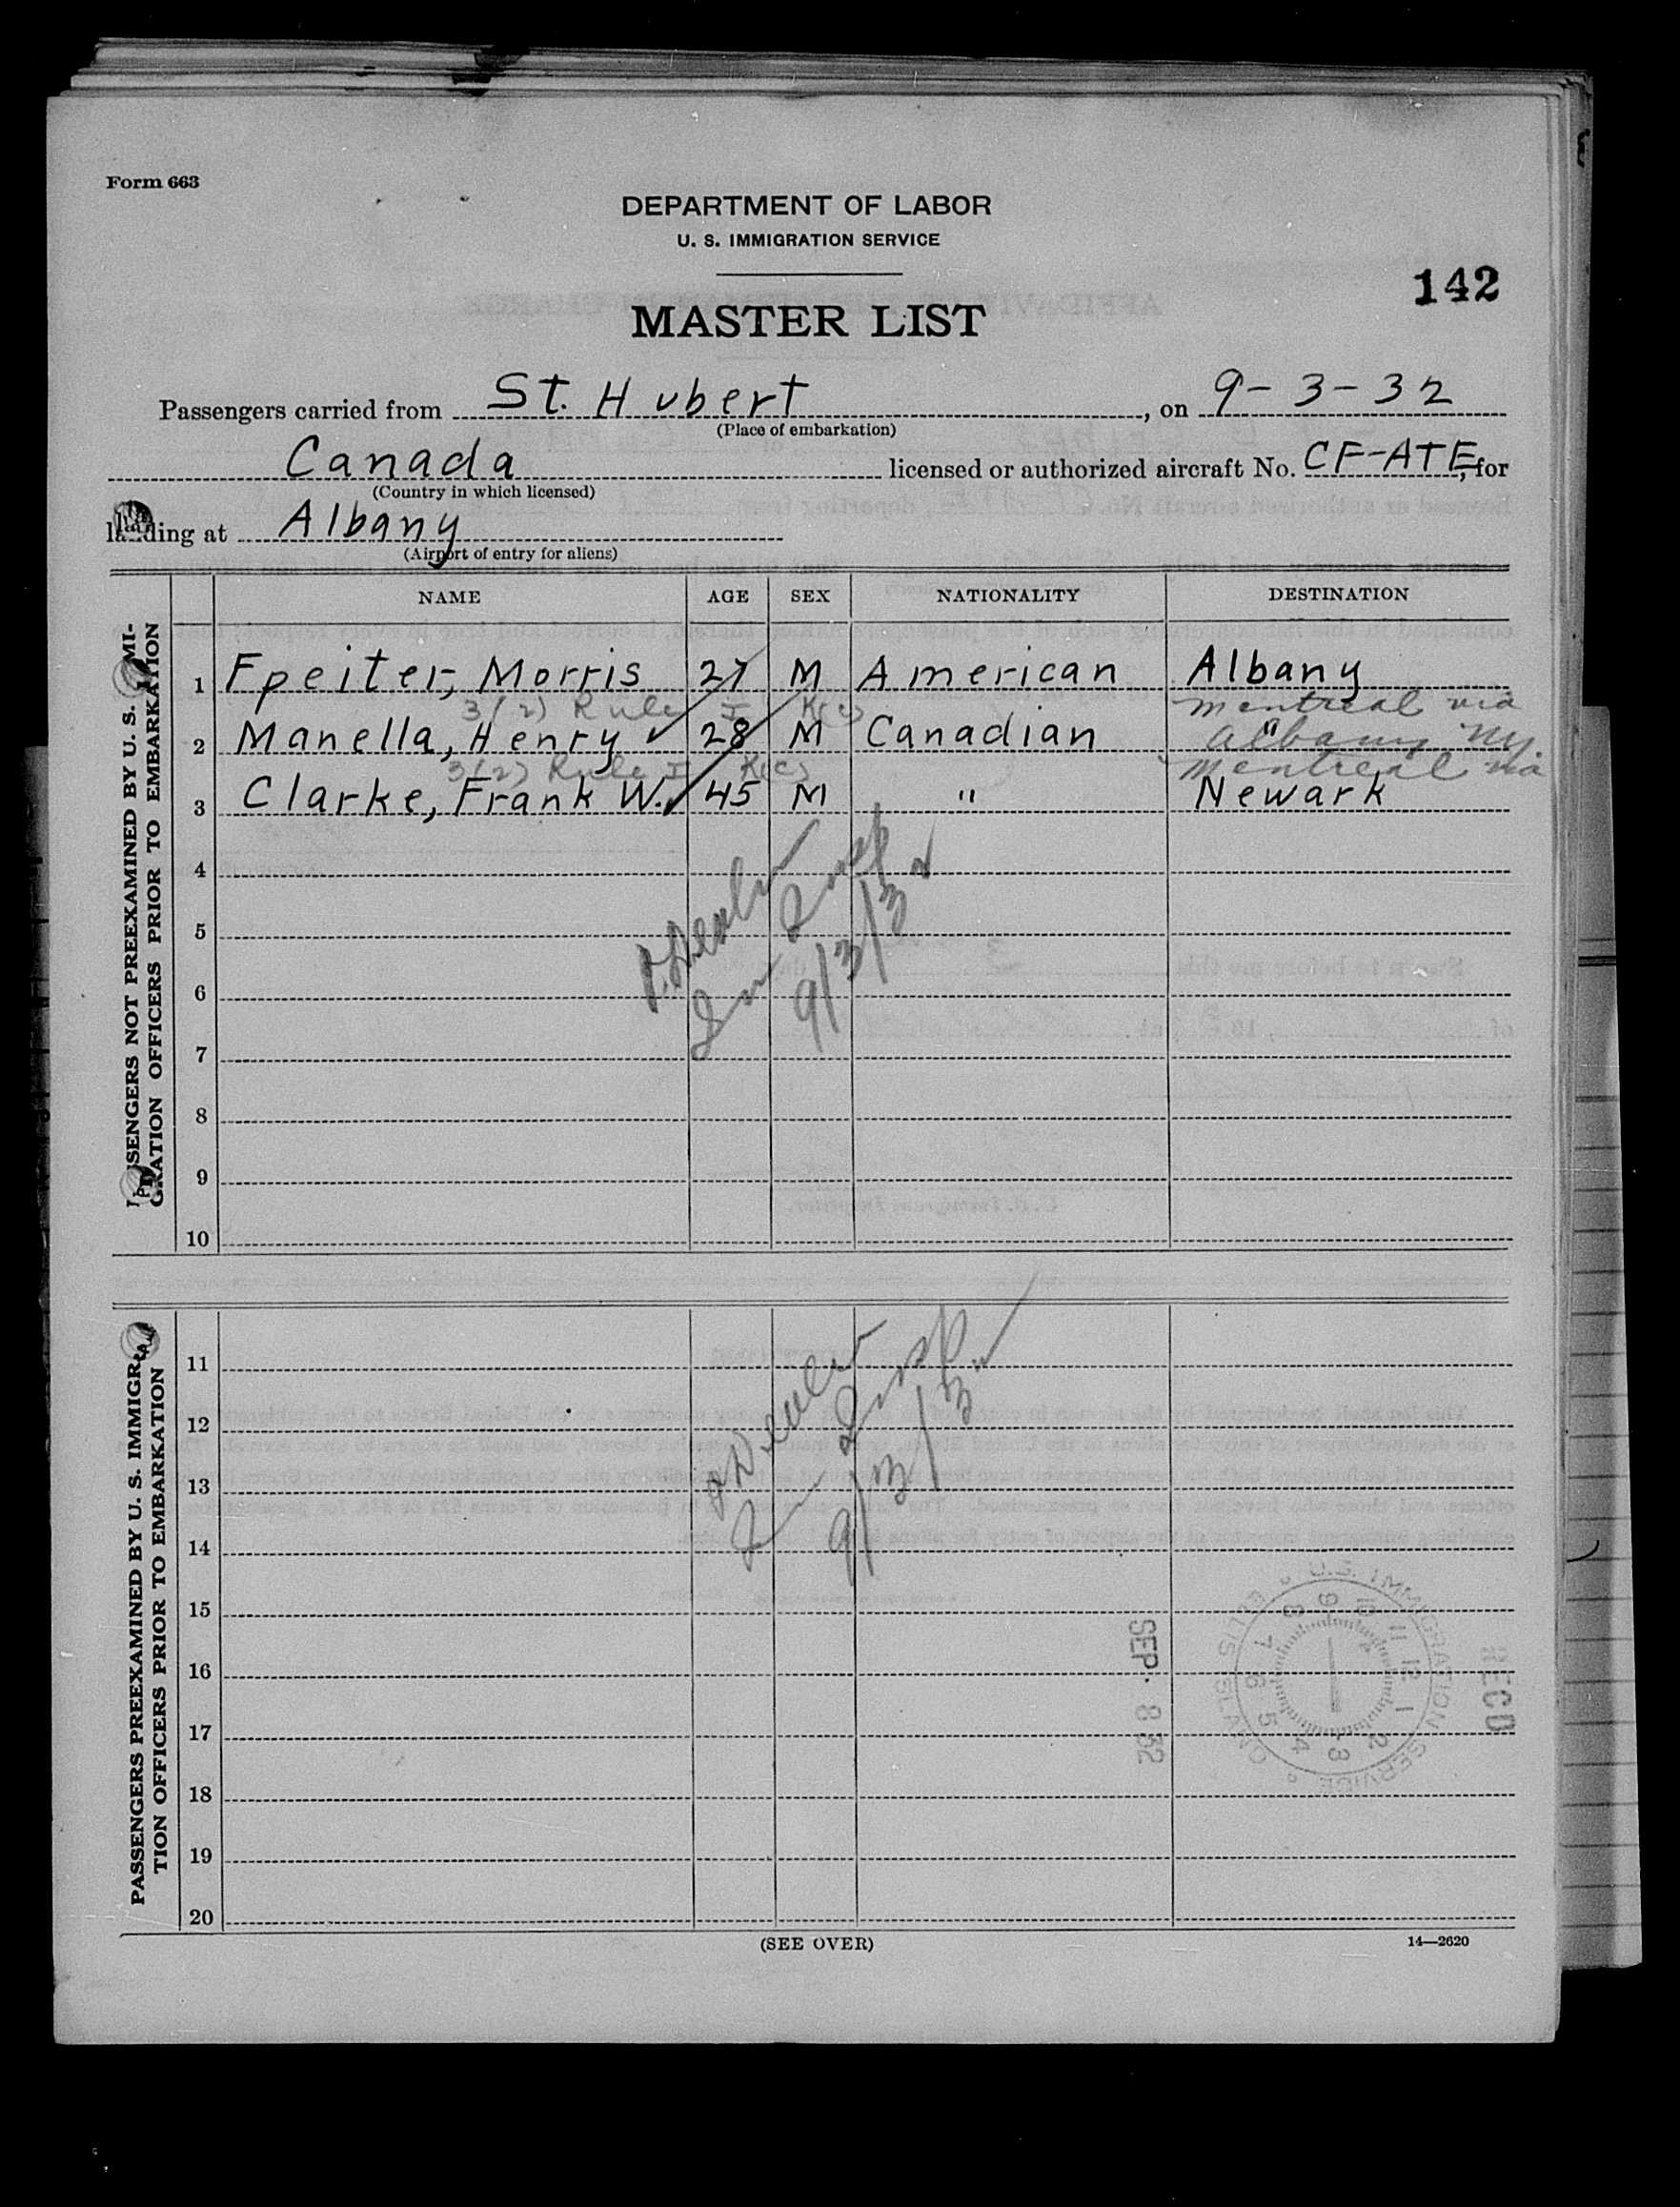 Form 663
DEPARTMENT OF LABOR
U. S. IMMIGRATION SERVICE
142
MASTER LIST
Passengers carried from St. Hubert, on 9-3-32
(Place of embarkation)
Canada licensed or authorized aircraft No. CF-ATE, for
(Country in which licensed)
landing at Albany
(Airport of entry for aliens)
NAME AGE SEX NATIONALITY DESTINATION
PASSENGERS NOT PREEXAMINED BY U. S. IMMI-
GRATION OFFICERS PRIOR TO EMBARKATION
1 Fpeiter, Morris 27 M American Albany
3(2) Rule I K(c) montreal via
2 Manella, Henry 28 M Canadian "
albany ny.
3(2) Rule I K(c) montreal via
3 Clarke, Frank W. 45 M " Newark
4
5
6
7
8
9
10
Imm Insp
9/3/32
PASSENGERS PREEXAMINED BY U. S. IMMIGRA-
TION OFFICERS PRIOR TO EMBARKATION
11
12
13
14
15
16
17
18
19
20
Imm Insp
9/3/32
U.S. IMMIGRATION SERVICE ELLIS ISLAND
1 2 3 4 5 6 7 8 9 10 11 12
REC'D
SEP 8 32
(SEE OVER)
14—2620